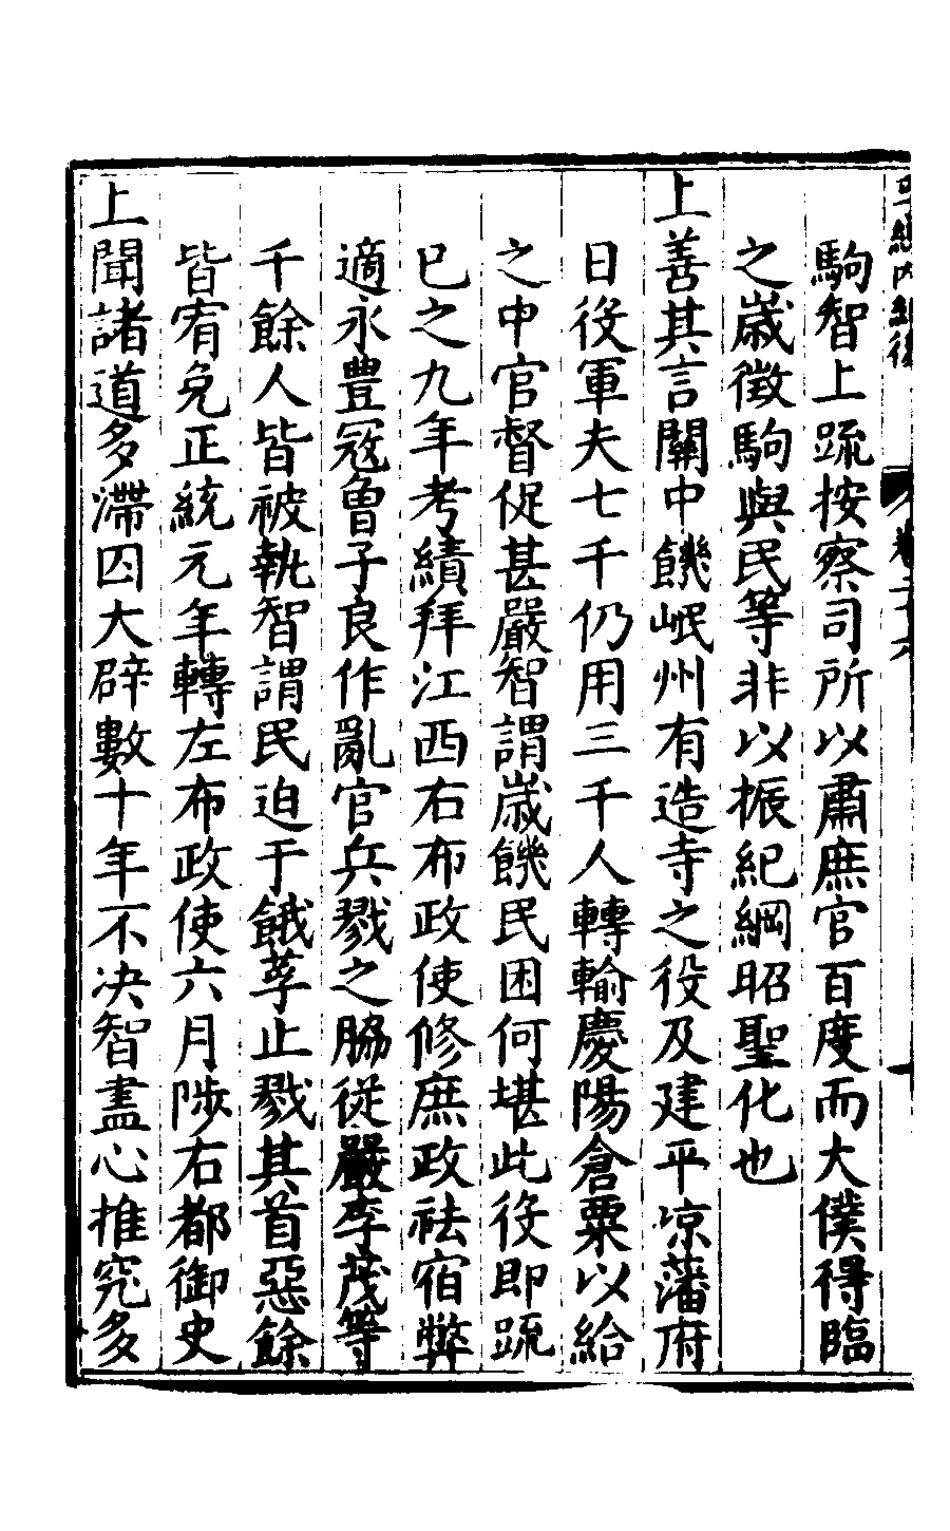 駒智上䟽按察司所以肅庶官百度而大僕得臨
之歳徵駒與民等非以振紀綱昭聖化也
上善其言關中饑岷州有造寺之役及建平凉藩府
日役軍夫七千仍用三千人轉輸慶陽倉粟以給
之中官督促甚嚴智謂歳饑民困何堪此役即䟽
已之九年考績拜江西右布政使修庶政祛宿弊
適永豊冦曾子良作亂官兵戮之脇從嚴季茂等
千餘人皆被執智謂民迫于餓莩止戮其首惡餘
皆宥免正統元年轉左布政使六月陟右都御史
上聞諸道多滯囚大辟數十年不决智盡心推究多